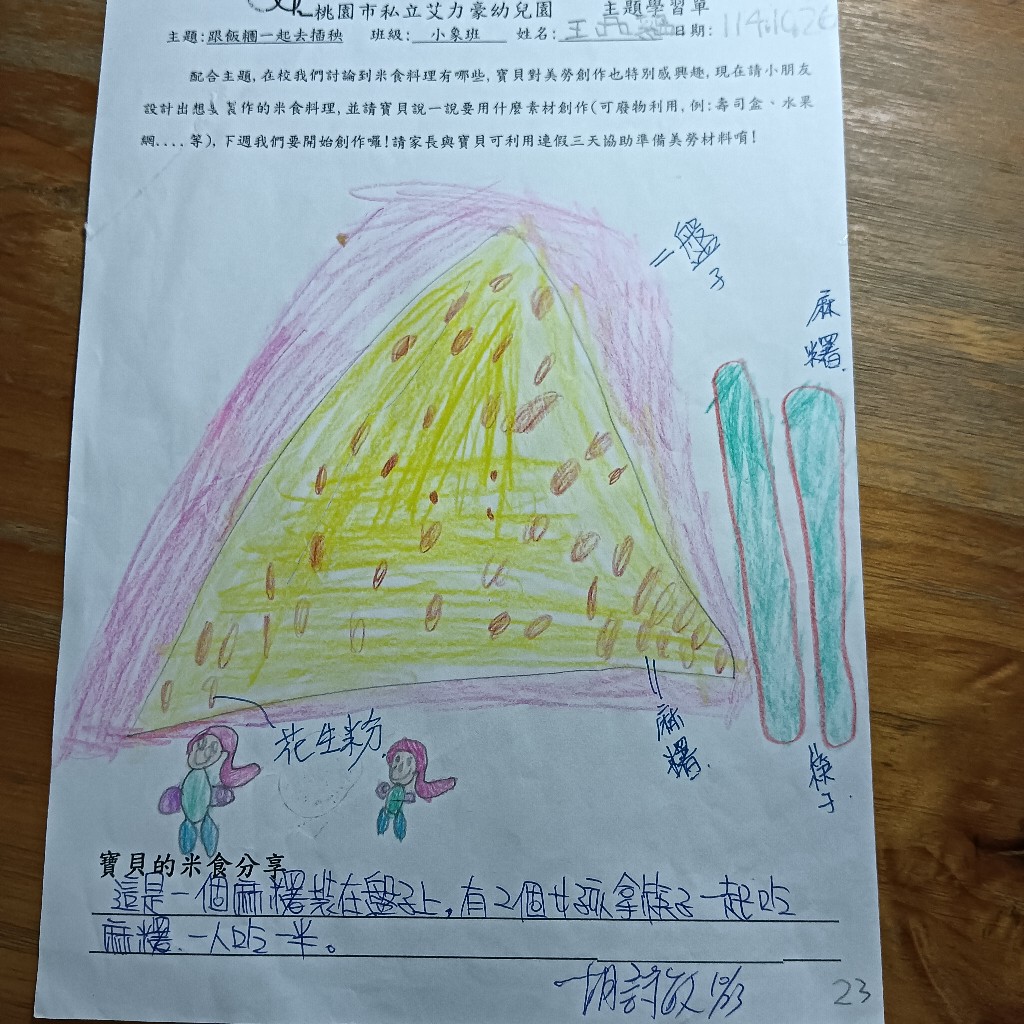 桃園市私立艾力豪幼兒園 主題學習單
主題:跟飯糰一起去插秧 班級: 小象班 姓名: 日期: 114.10.26
配合主題,在校我們討論到米食料理有哪些,寶貝對美勞創作也特別感興趣,現在請小朋友
設計出想要製作的米食料理,並請寶貝說一說要用什麼素材創作(可廢物利用,例:壽司盒、水果
網....等),下週我們要開始創作囉!請家長與寶貝可利用連假三天協助準備美勞材料唷!
盤子
麻糬
花生粉
麻糬
筷子
寶貝的米食分享
這是一個麻糬裝在盤子上,有2個女孩拿筷子一起吃
麻糬.一人吃一半。
23